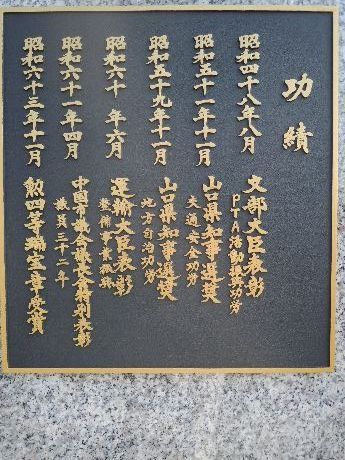 功績
昭和四十八年八月
文部大臣表彰
PTA活動振興功労
昭和五十一年十一月
山口県知事選奨
交通安全功労
昭和五十九年十一月
山口県知事選奨
地方自治功労
昭和六十年六月
運輸大臣表彰
整備事業
昭和六十一年四月
中国市議会議長会特別表彰
議員三十二年
昭和六十三年十一月
勲四等瑞宝章受賞